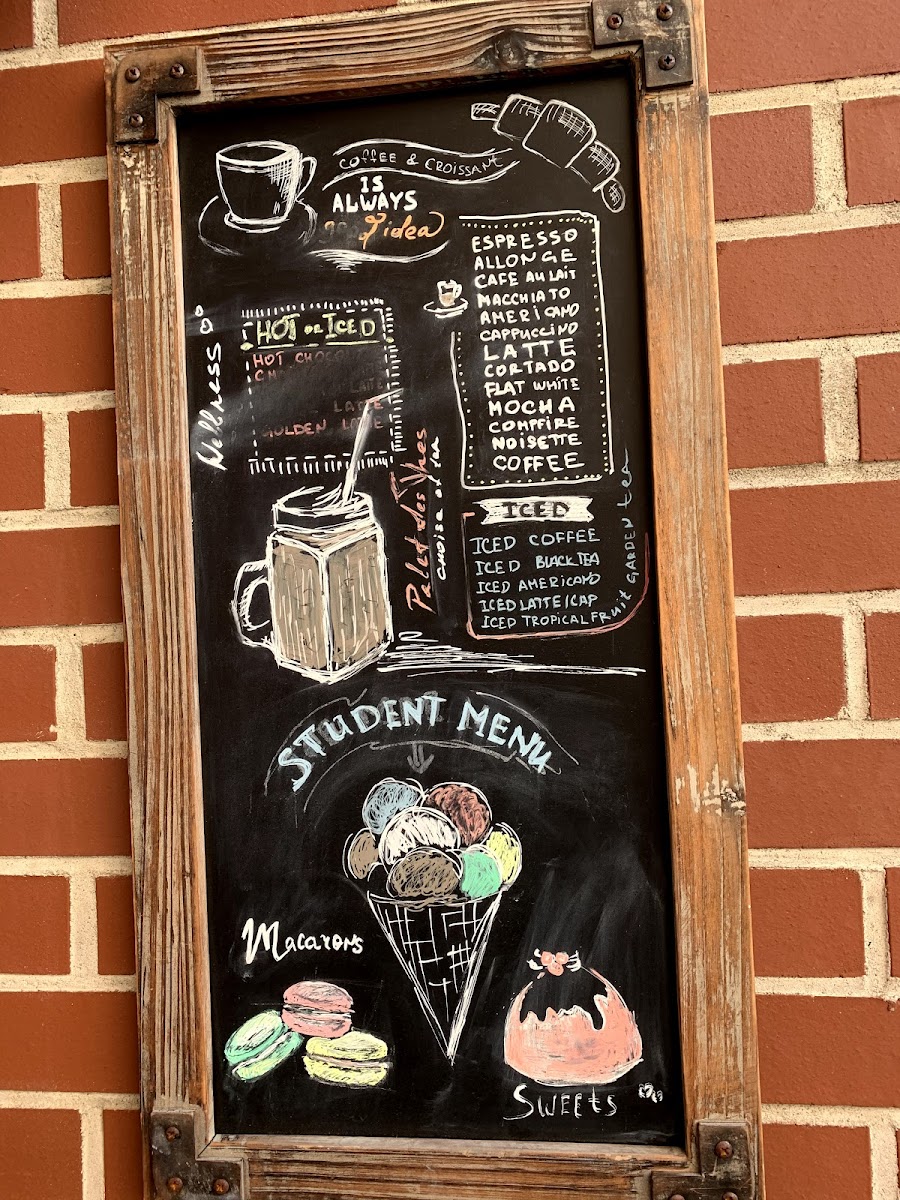 COFFEE & CROISSANT
IS
ALWAYS
idea
ESPRESSO
ALLONGE
CAFE AU LAIT
MACCHIATO
AMERICANO
CAPPUCCINO
LATTE
CORTADO
FLAT WHITE
MOCHA
COMPFIRE
NOISETTE
COFFEE
Wellness
HOT or ICED
HOT
LATTE
LATTE
GOLDEN
Palet des Thes
CHOISE of tea
ICED
ICED COFFEE
ICED BLACK TEA
ICED AMERICANO
ICED LATTE/CAP
ICED TROPICAL FRuit GARDEN tea
STUDENT MENU
Macarons
SWEEtS